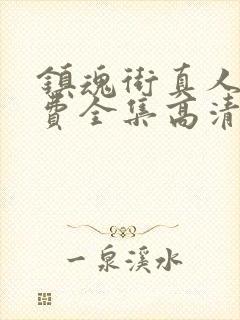 镇魂街真人
费全集高清
一泉溪水